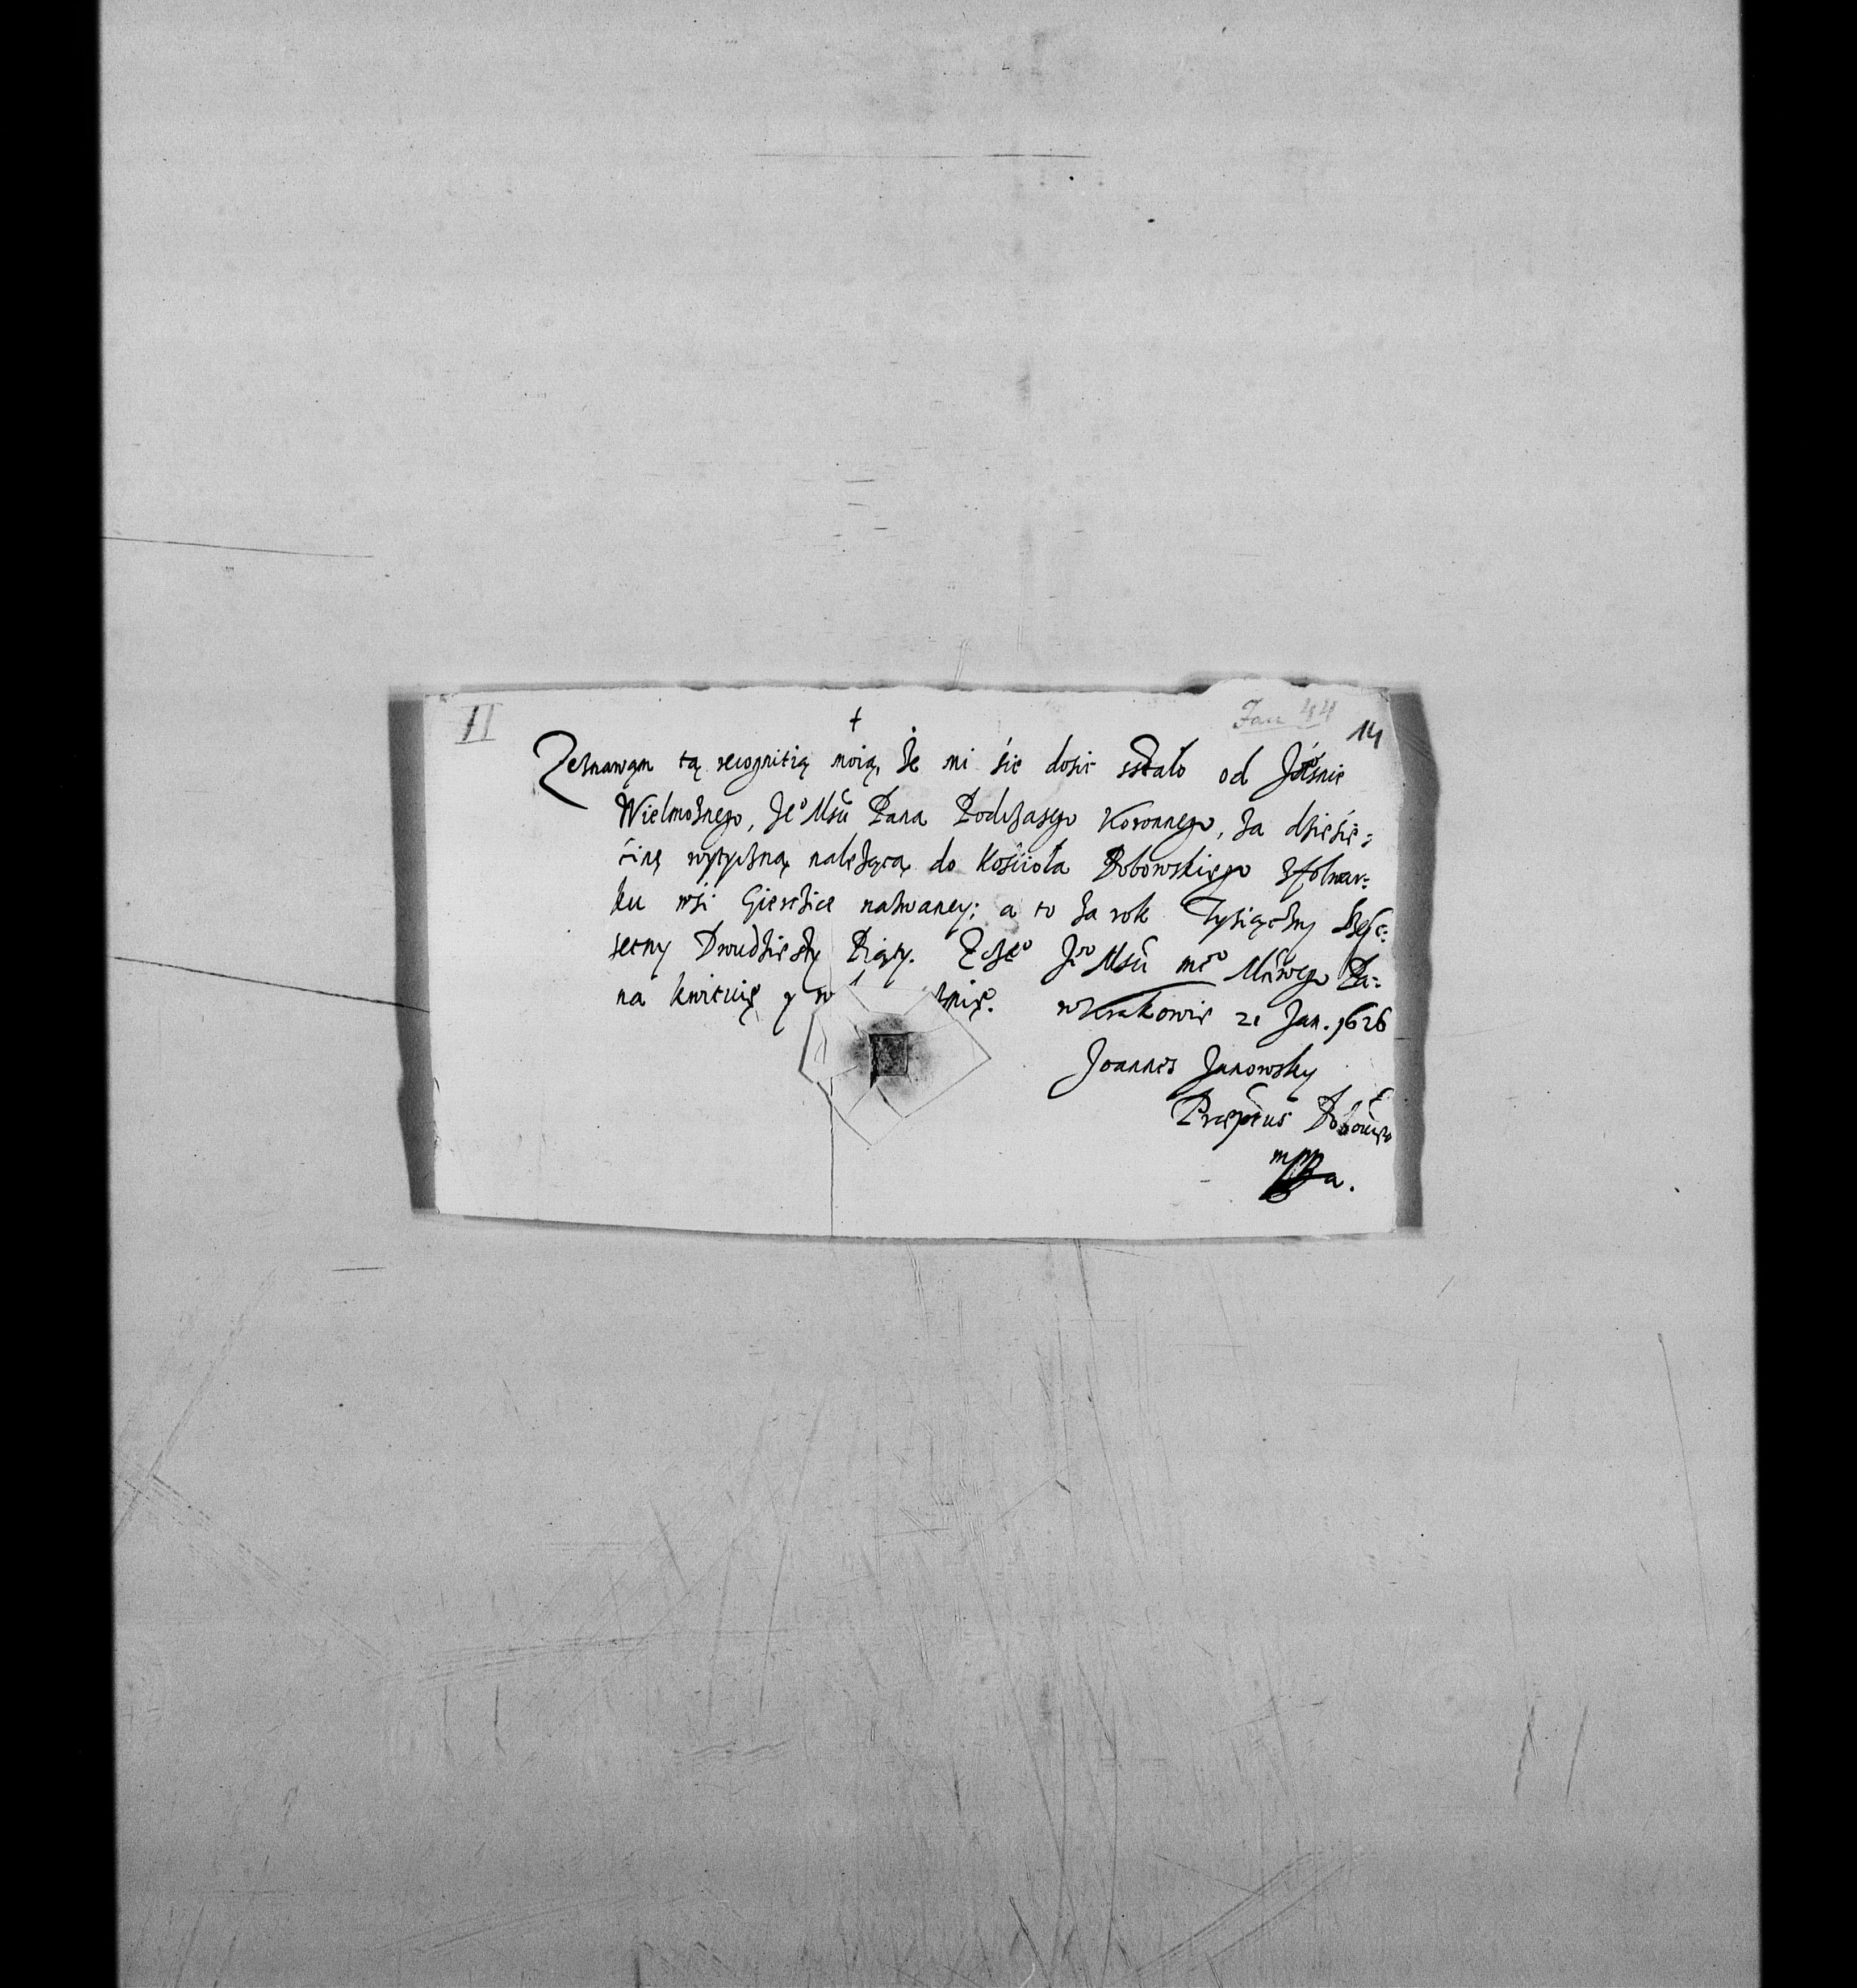 II
Jan 44
14
†
Zeznawąm tą recognitią moią, że mi sie dosic sstało od Jaśnie
Wielmożnego, Je° Mśći Pana Podczaszego Koronnego, za dziesię=
cinę wytyczną należącą do Kościoła Bobowskiego zfolwar=
ku wśi Gierczice nazwaney; a to za rok Tysiączny Szesc=
setny Dwudziesty Piąty. Zcze° Je° Mśći me° Mćiwego Pa=
na kwituię y w znię. w Krakowie 21 Jan. 1626
Joannes Janowsky
Præptus
mppa.